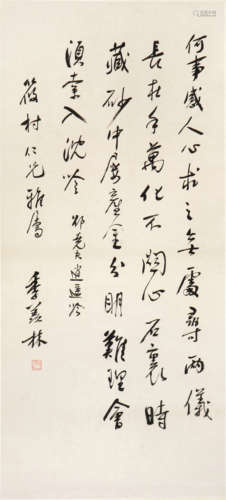 何事感人心求之無處尋兩儀
長在手萬化不關心石裏時
藏砂中屢金分明難理會
須索入沈吟 邵堯夫逍遥吟
筱村仁兄雅屬
季羡林